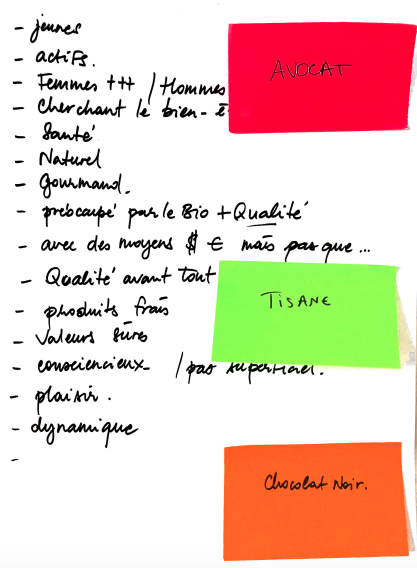 - jeunes
- actifs.
- Femmes +++ / Hommes
- Cherchant le bien-ê
- Santé
- Naturel
- Gourmand.
- préocupé par le Bio + Qualité
- avec des moyens $ € mais pas que ...
- Qualité avant tout
- produits frais
- Valeurs sûres
- consciencieux- / pas superficiel.
- plaisir.
- dynamique
-
AVOCAT
TISANE
Chocolat Noir.